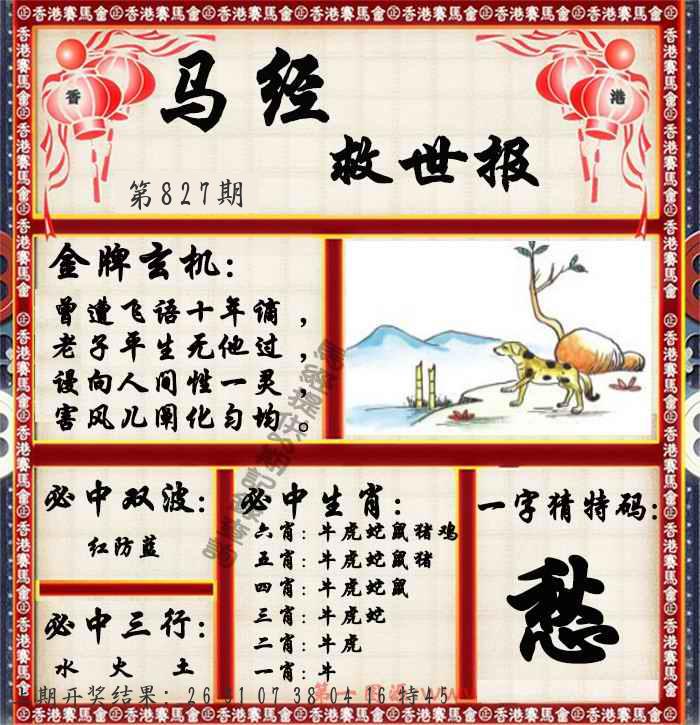 香港賽馬會 香港賽馬會 香港賽馬會 香港賽馬會 香港賽馬會 香港賽馬會 香港賽馬會
香
港
马经
救世报
第827期
金牌玄机:
曾遭飞语十年谪，
老子平生无他过，
谩向人间性一灵，
害风儿阐化匀均。
必中双波:
红防蓝
必中三行:
水 火 土
必中生肖:
六肖:牛虎蛇鼠猪鸡
五肖:牛虎蛇鼠猪
四肖:牛虎蛇鼠
三肖:牛虎蛇
二肖:牛虎
一肖:牛
一字猜特码:
愁
期开奖结果: 26 01 07 38 04 16 特45